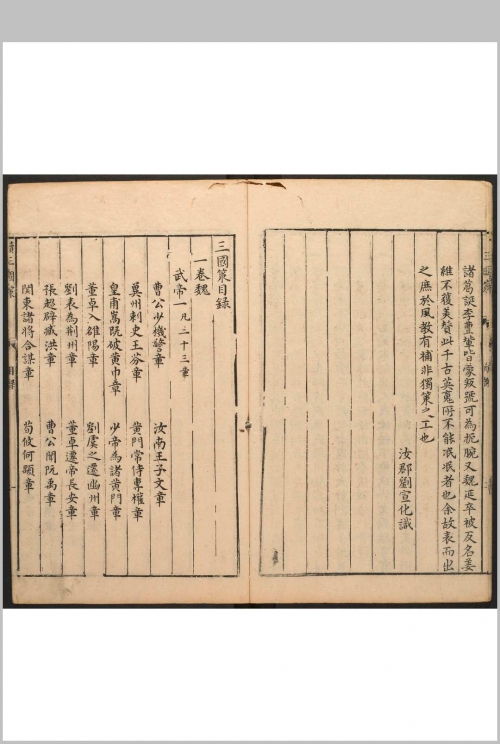 諸葛誕李豐輩皆蒙叛號可為扼腕又魏延卒被反名姜
維不獲美贊此千古英寃所不能泯泯者也余故表而出
之庶於風教有補非獨策之工也
汝郡劉宣化識
三國策目録
一卷魏
武帝一凡三十三章
曹公少機警章
汝南王子文章
冀州刺史王芬章
黄門常侍專權章
皇甫嵩既破黄巾章
少帝為諸黄門章
董卓入雒陽章
劉虞之遷幽州章
劉表為荆州章
董卓遷帝長安章
張超辟臧洪章
曹公聞阮禹章
関東諸將合謀章
荀攸何顒章
三國策
目録